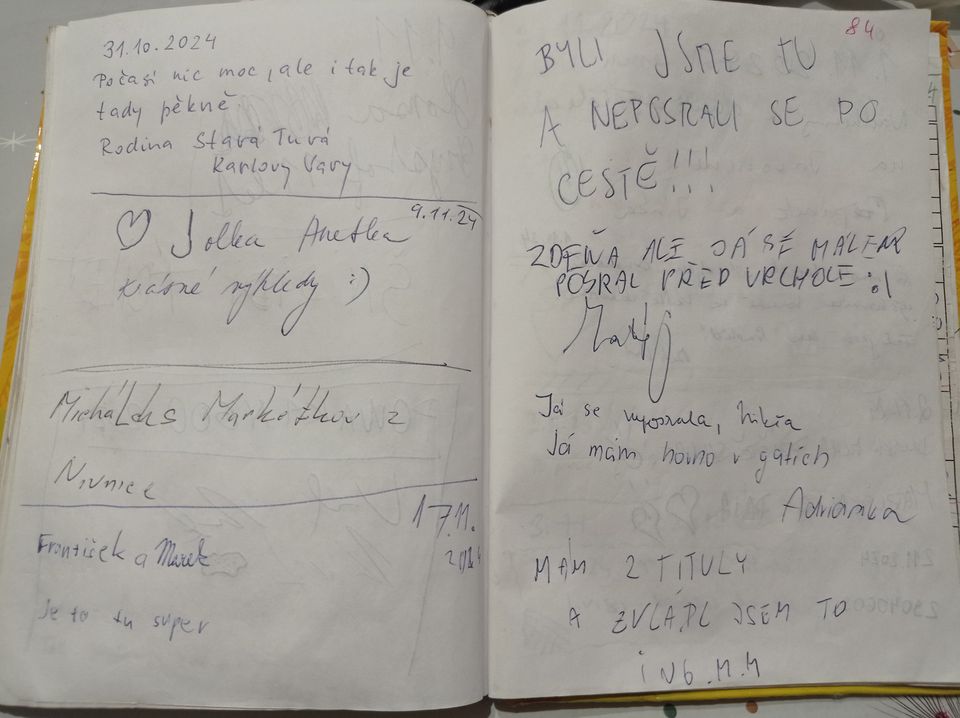 31.10.2024
Počasí nic moc, ale i tak je
tady pěkně
Rodina Stará Turá
Karlovy Vary
9.11.24
Jolka Anetka
krásné výhledy :)
Michálek s Markétkou z
Nivnice
17.11.
2024
František a Marek
Je to tu super
84
BYLI JSME TU
A NEPOSRALI SE PO
CESTĚ!!!
ZDEŇA ALE JÁ SE MÁLEM
POSRAL PŘED VRCHOLE :.|
Matěj
Já se vyposrala,
Já mám hovno v gatích
Adrianka
MÁM 2 TITULY
A ZVLÁDL JSEM TO
ING. M.M